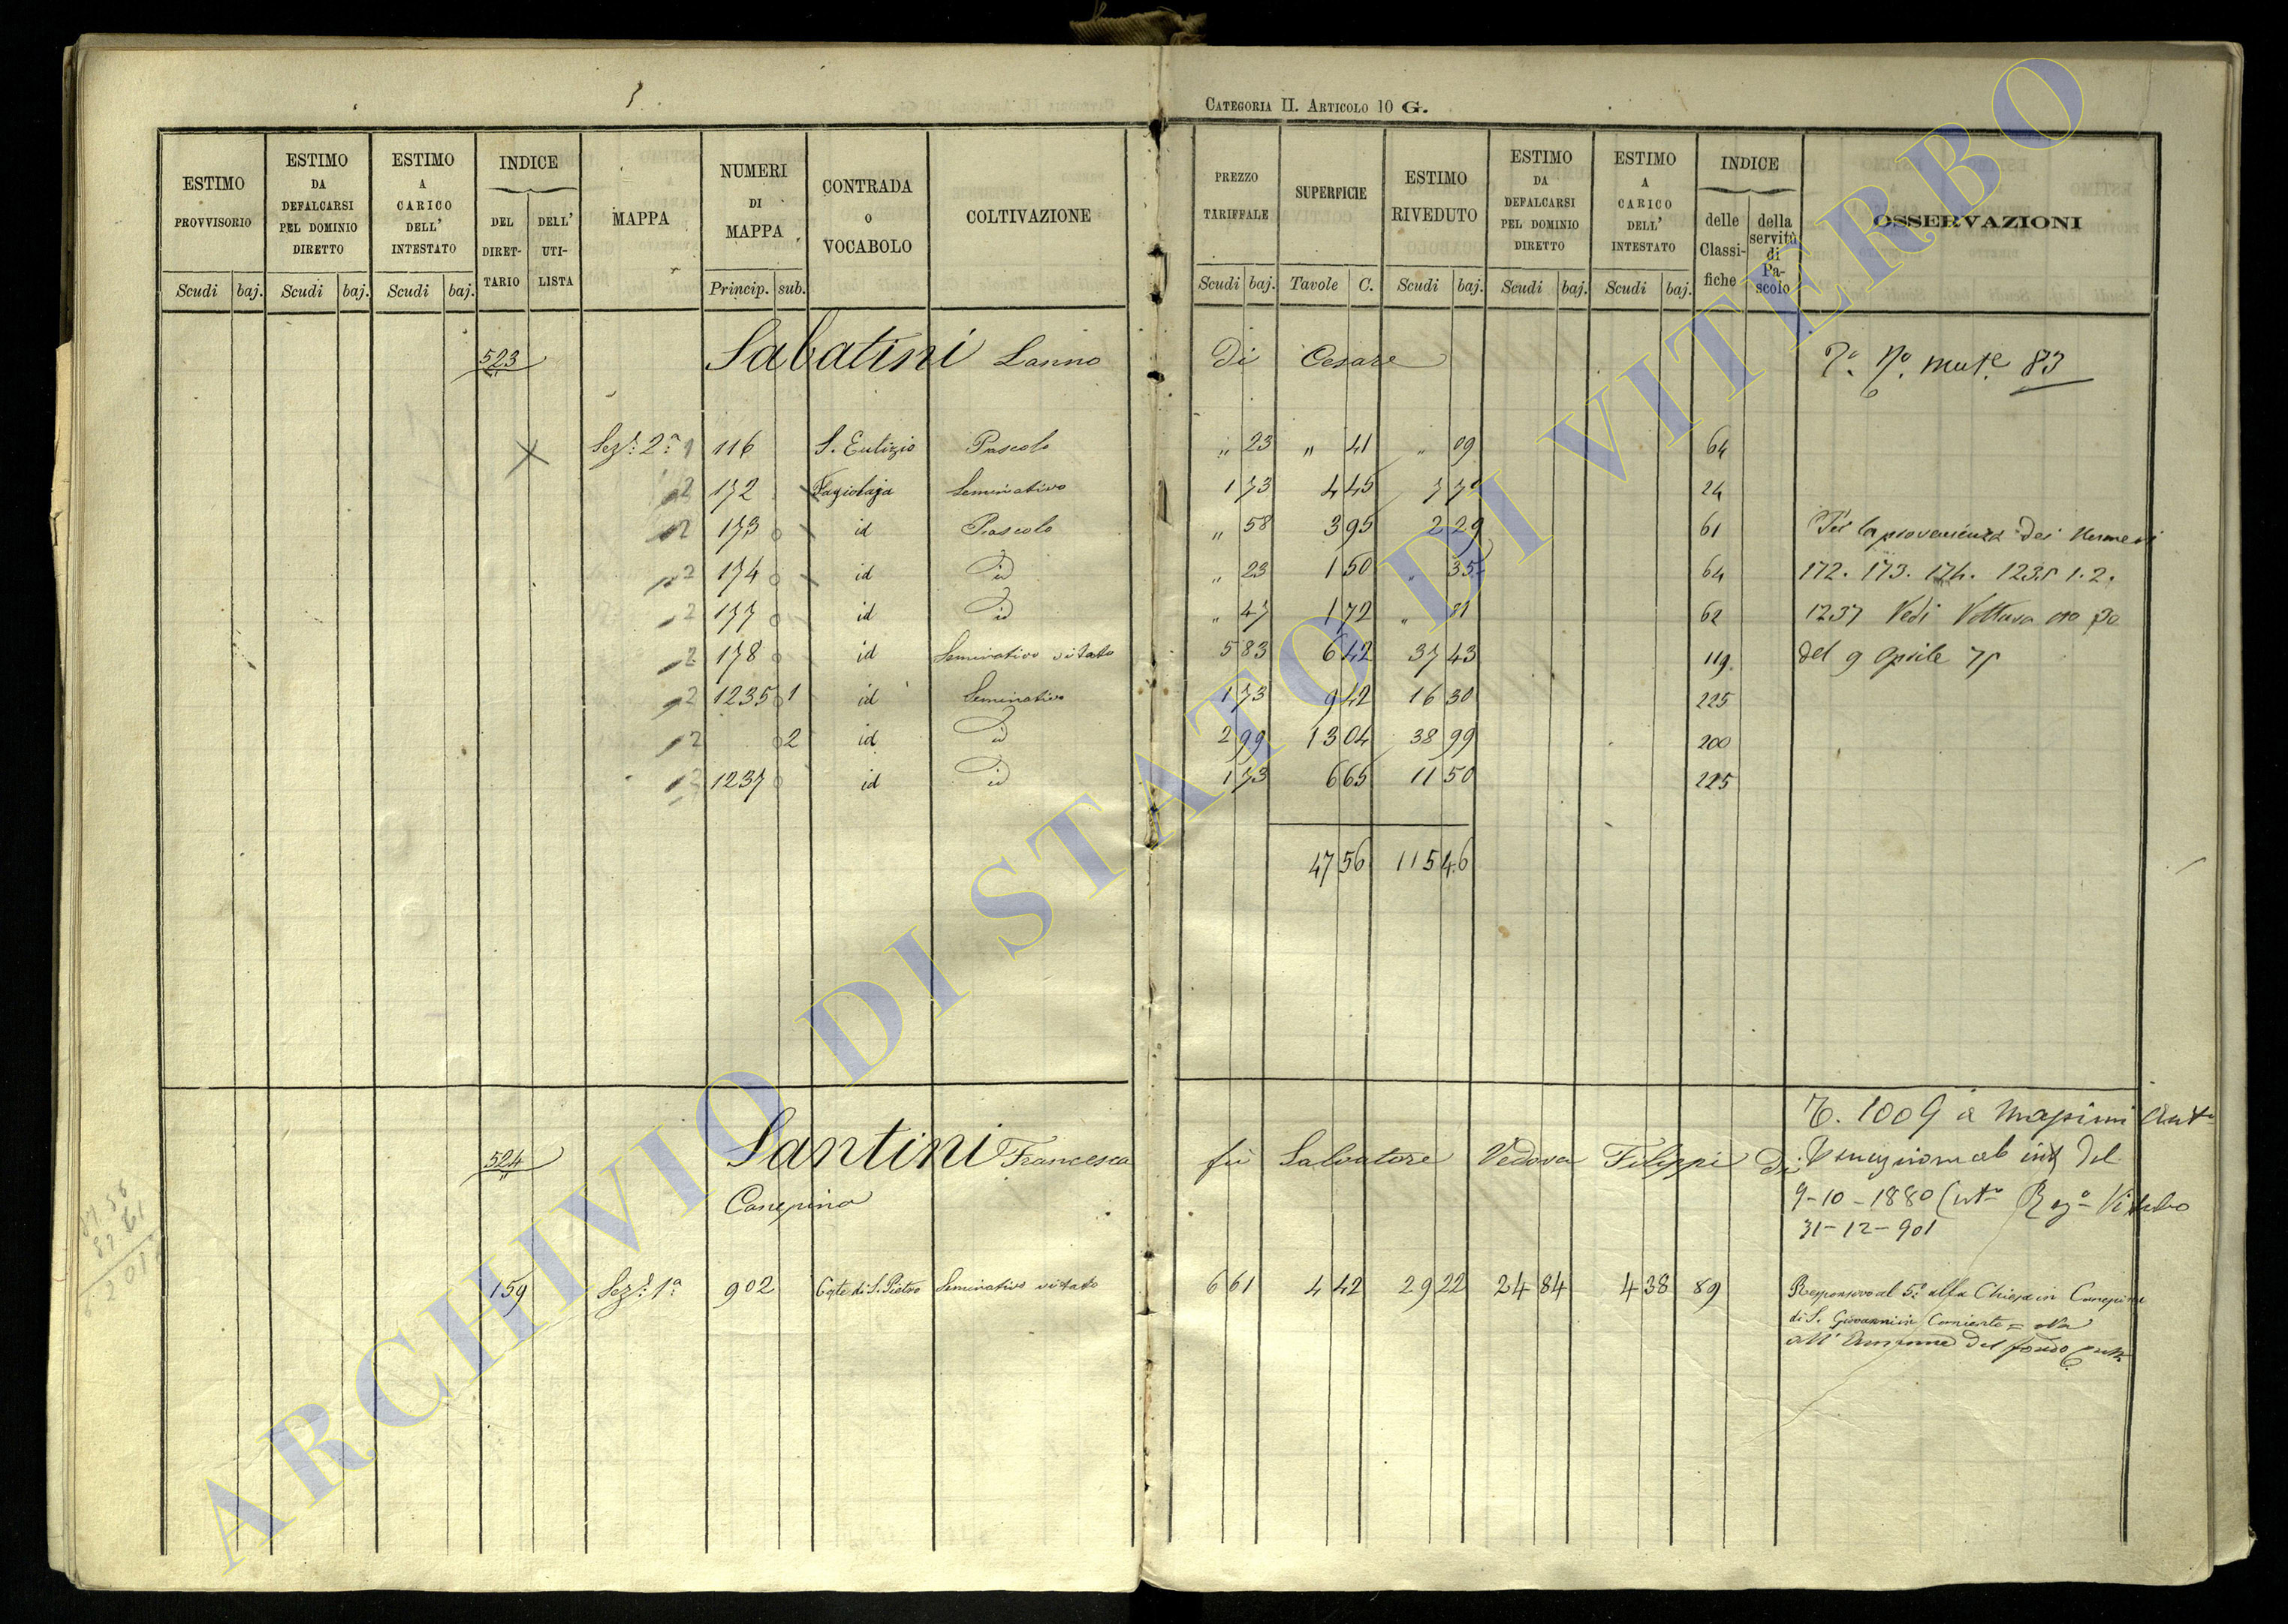 CATEGORIA II. ARTICOLO 10 G.
ESTIMO PROVVISORIO | ESTIMO DA DEFALCARSI PEL DOMINIO DIRETTO | ESTIMO A CARICO DELL' INTESTATO | INDICE DEL DIRETTARIO | DELL' UTILISTA | MAPPA | NUMERI DI MAPPA | CONTRADA O VOCABOLO | COLTIVAZIONE | PREZZO TARIFFALE | SUPERFICIE | ESTIMO RIVEDUTO | ESTIMO DA DEFALCARSI PEL DOMINIO DIRETTO | ESTIMO A CARICO DELL' INTESTATO | INDICE delle Classifiche | della servitù di Pascolo | OSSERVAZIONI
Scudi baj. | Scudi baj. | Scudi baj. | Princip. sub. | Scudi baj. | Tavole C. | Scudi baj. | Scudi baj. | Scudi baj.
523 Sabatini Lanno di Cesare 83
Sez: 2a 116 S. Eutizio Pascolo " 23 " 41 " 09 64
2 172 Fagiolaja Seminativo 1 73 4 45 7 70 24
2 173 id Pascolo " 58 3 95 2 29 61 Per la provenienza dei Numeri
2 174 id id " 23 1 50 " 35 64 172. 173. 174. 1235 1. 2.
2 177 id id " 47 1 72 " 81 62 1237 Vedi Voltura no 30
2 178 id Seminativo vitato 5 83 6 42 37 43 119 del 9 Aprile 75
2 1235 1 id Seminativo 1 73 9 42 16 30 225
2 2 id id 2 99 13 04 38 99 200
2 1237 id id 1 73 6 65 11 50 225
47 56 115 46
524 Santini Francesca fu Salvatore Vedova Filippi di
Canepina
9-10-1880 Viterbo
31-12-901
159 Sez: 1a 902 Coste di S. Pietro Seminativo vitato 6 61 4 42 29 22 24 84 4 38 89 Responsivo al 5o alla Chiesa in Canepina
di S. Giovanni
del fondo